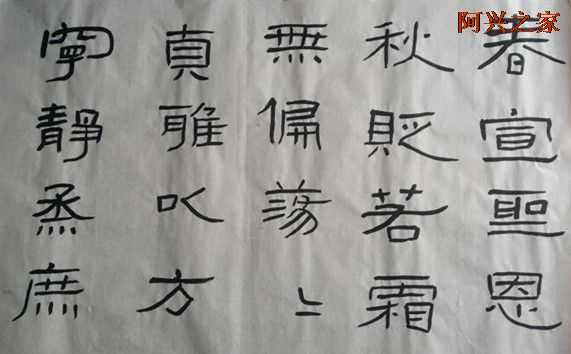 阿兴之家
春宣聖恩
秋貶若霜
無偏蕩〻
貞雅以方
寧靜烝庶